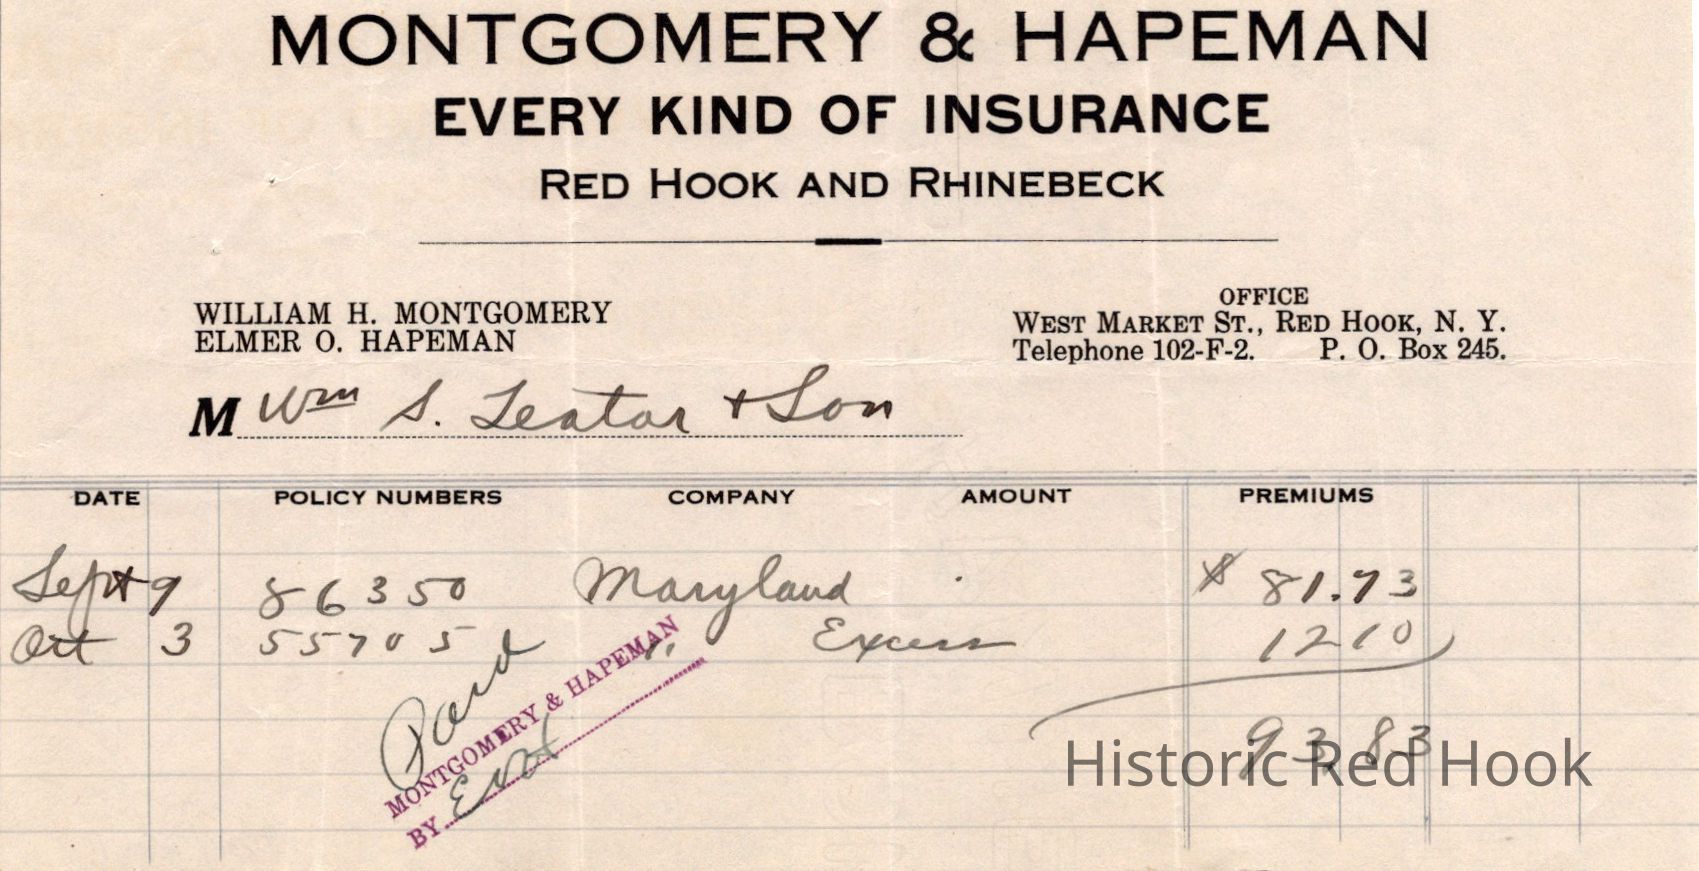 MONTGOMERY & HAPEMAN
EVERY KIND OF INSURANCE
RED HOOK AND RHINEBECK
WILLIAM H. MONTGOMERY
ELMER O. HAPEMAN
OFFICE
WEST MARKET ST., RED HOOK, N. Y.
Telephone 102-F-2. P. O. Box 245.
M Wm S. Teator + Son
DATE POLICY NUMBERS COMPANY AMOUNT PREMIUMS
Sept 9 86350 Maryland $ 81.73
Oct 3 55705 " Excess 12 10
93.83
Paid
MONTGOMERY & HAPEMAN
BY
Historic Red Hook